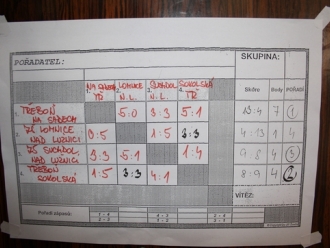 POŘADATEL:
SKUPINA:
NA SADECH TŘ
LOMNICE N.L.
SUCHDOL N.L.
SOKOLSKÁ TŘ
Skóre Body POŘADÍ
TŘEBOŇ NA SADECH 5:0 3:3 5:1 13:4 7 1
ZŠ LOMNICE NAD LUŽNICÍ 0:5 1:5 3:3 4:13 1 4
ZŠ SUCHDOL NAD LUŽNICÍ 3:3 5:1 1:4 9:8 4 3
TŘEBOŇ SOKOLSKÁ 1:5 3:3 4:1 8:9 4 2
VÍTĚZ:
Pořadí zápasů: